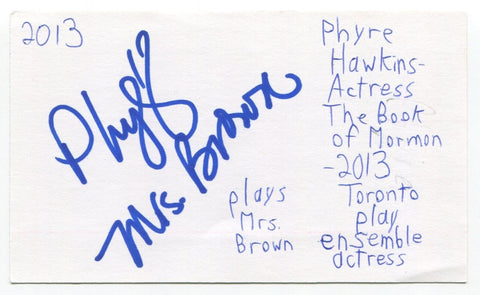 2013
Phyre
Mrs. Brown
plays
Mrs.
Brown
Phyre
Hawkins-
Actress
The Book
of Mormon
-2013
Toronto
play
ensemble
actress